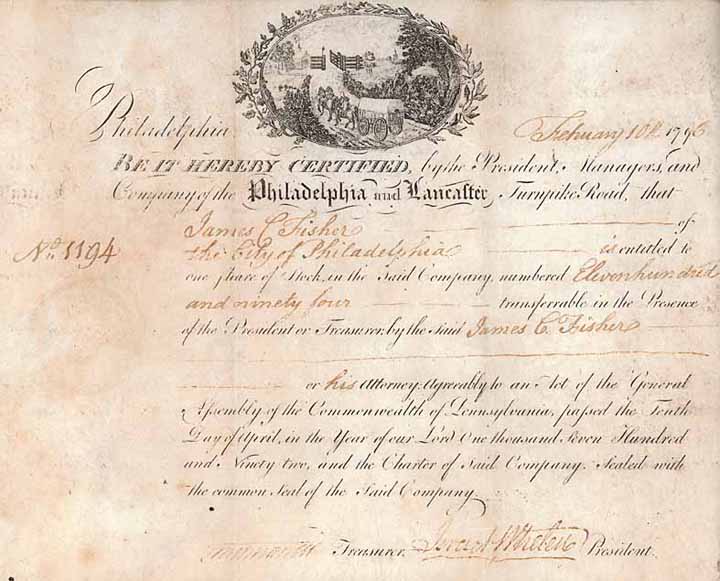 Philadelphia February 10th 1796
BE IT HEREBY CERTIFIED, by the President, Managers, and
Company of the Philadelphia and Lancaster Turnpike Road, that
James C Fisher of
No. 1194 the City of Philadelphia is entitled to
one share of Stock, in the Said Company, numbered Eleven hundred
and ninety four transferrable in the Presence
of the President or Treasurer, by the said James C. Fisher
or his Attorney. Agreably to an Act of the General
Assembly of the Commonwealth of Pennsylvania, passed the Tenth
Day of April, in the Year of our Lord One thousand Seven Hundred
and Ninety two, and the Charter of Said Company. Sealed with
the common Seal of the Said Company
Treasurer. Israel Whelen President